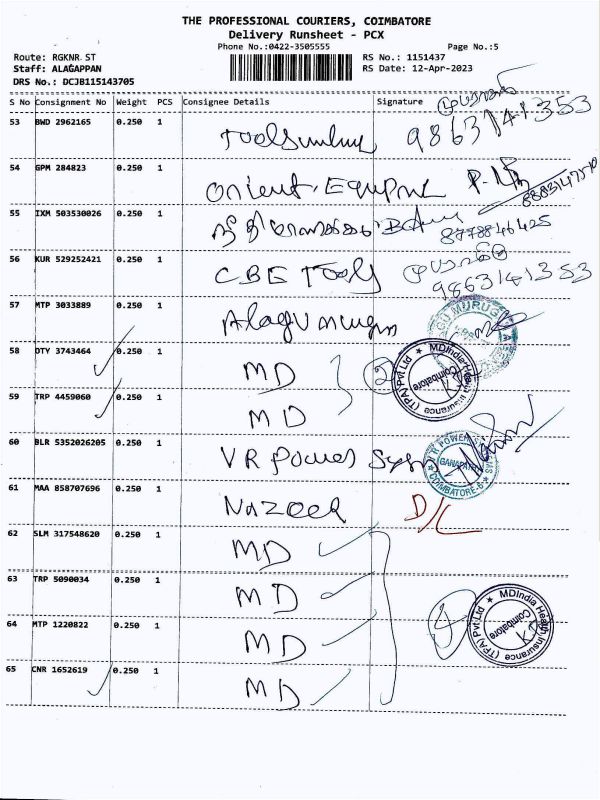 THE PROFESSIONAL COURIERS, COIMBATORE
Delivery Runsheet - PCX
Phone No.:0422-3505555 Page No.:5
Route: RGKNR ST RS No.: 1151437
Staff: ALAGAPPAN RS Date: 12-Apr-2023
DRS No.: DCJB115143705
S No Consignment No Weight PCS Consignee Details Signature
53 BWD 2962165 0.250 1 9863141353
54 GPM 284823 0.250 1 Orient.
55 IXM 503530026 0.250 1 8778846425
56 KUR 529252421 0.250 1 CBE Tools 9863141353
57 MTP 3033889 0.250 1 Alagu murugan
58 OTY 3743464 0.250 1 MD 2 MDIndia Health Insurance (TPA) Pvt Ltd Coimbatore
59 TRP 4459060 0.250 1 MD
60 BLR 5352026205 0.250 1 VR Power System COIMBATORE-6
61 MAA 858707696 0.250 1 Nazeer D/L
62 SLM 317548620 0.250 1 MD
63 TRP 5090034 0.250 1 MD
64 MTP 1220822 0.250 1 MD 4 MDIndia Health Insurance (TPA) Pvt Ltd Coimbatore
65 CNR 1652619 0.250 1 MD